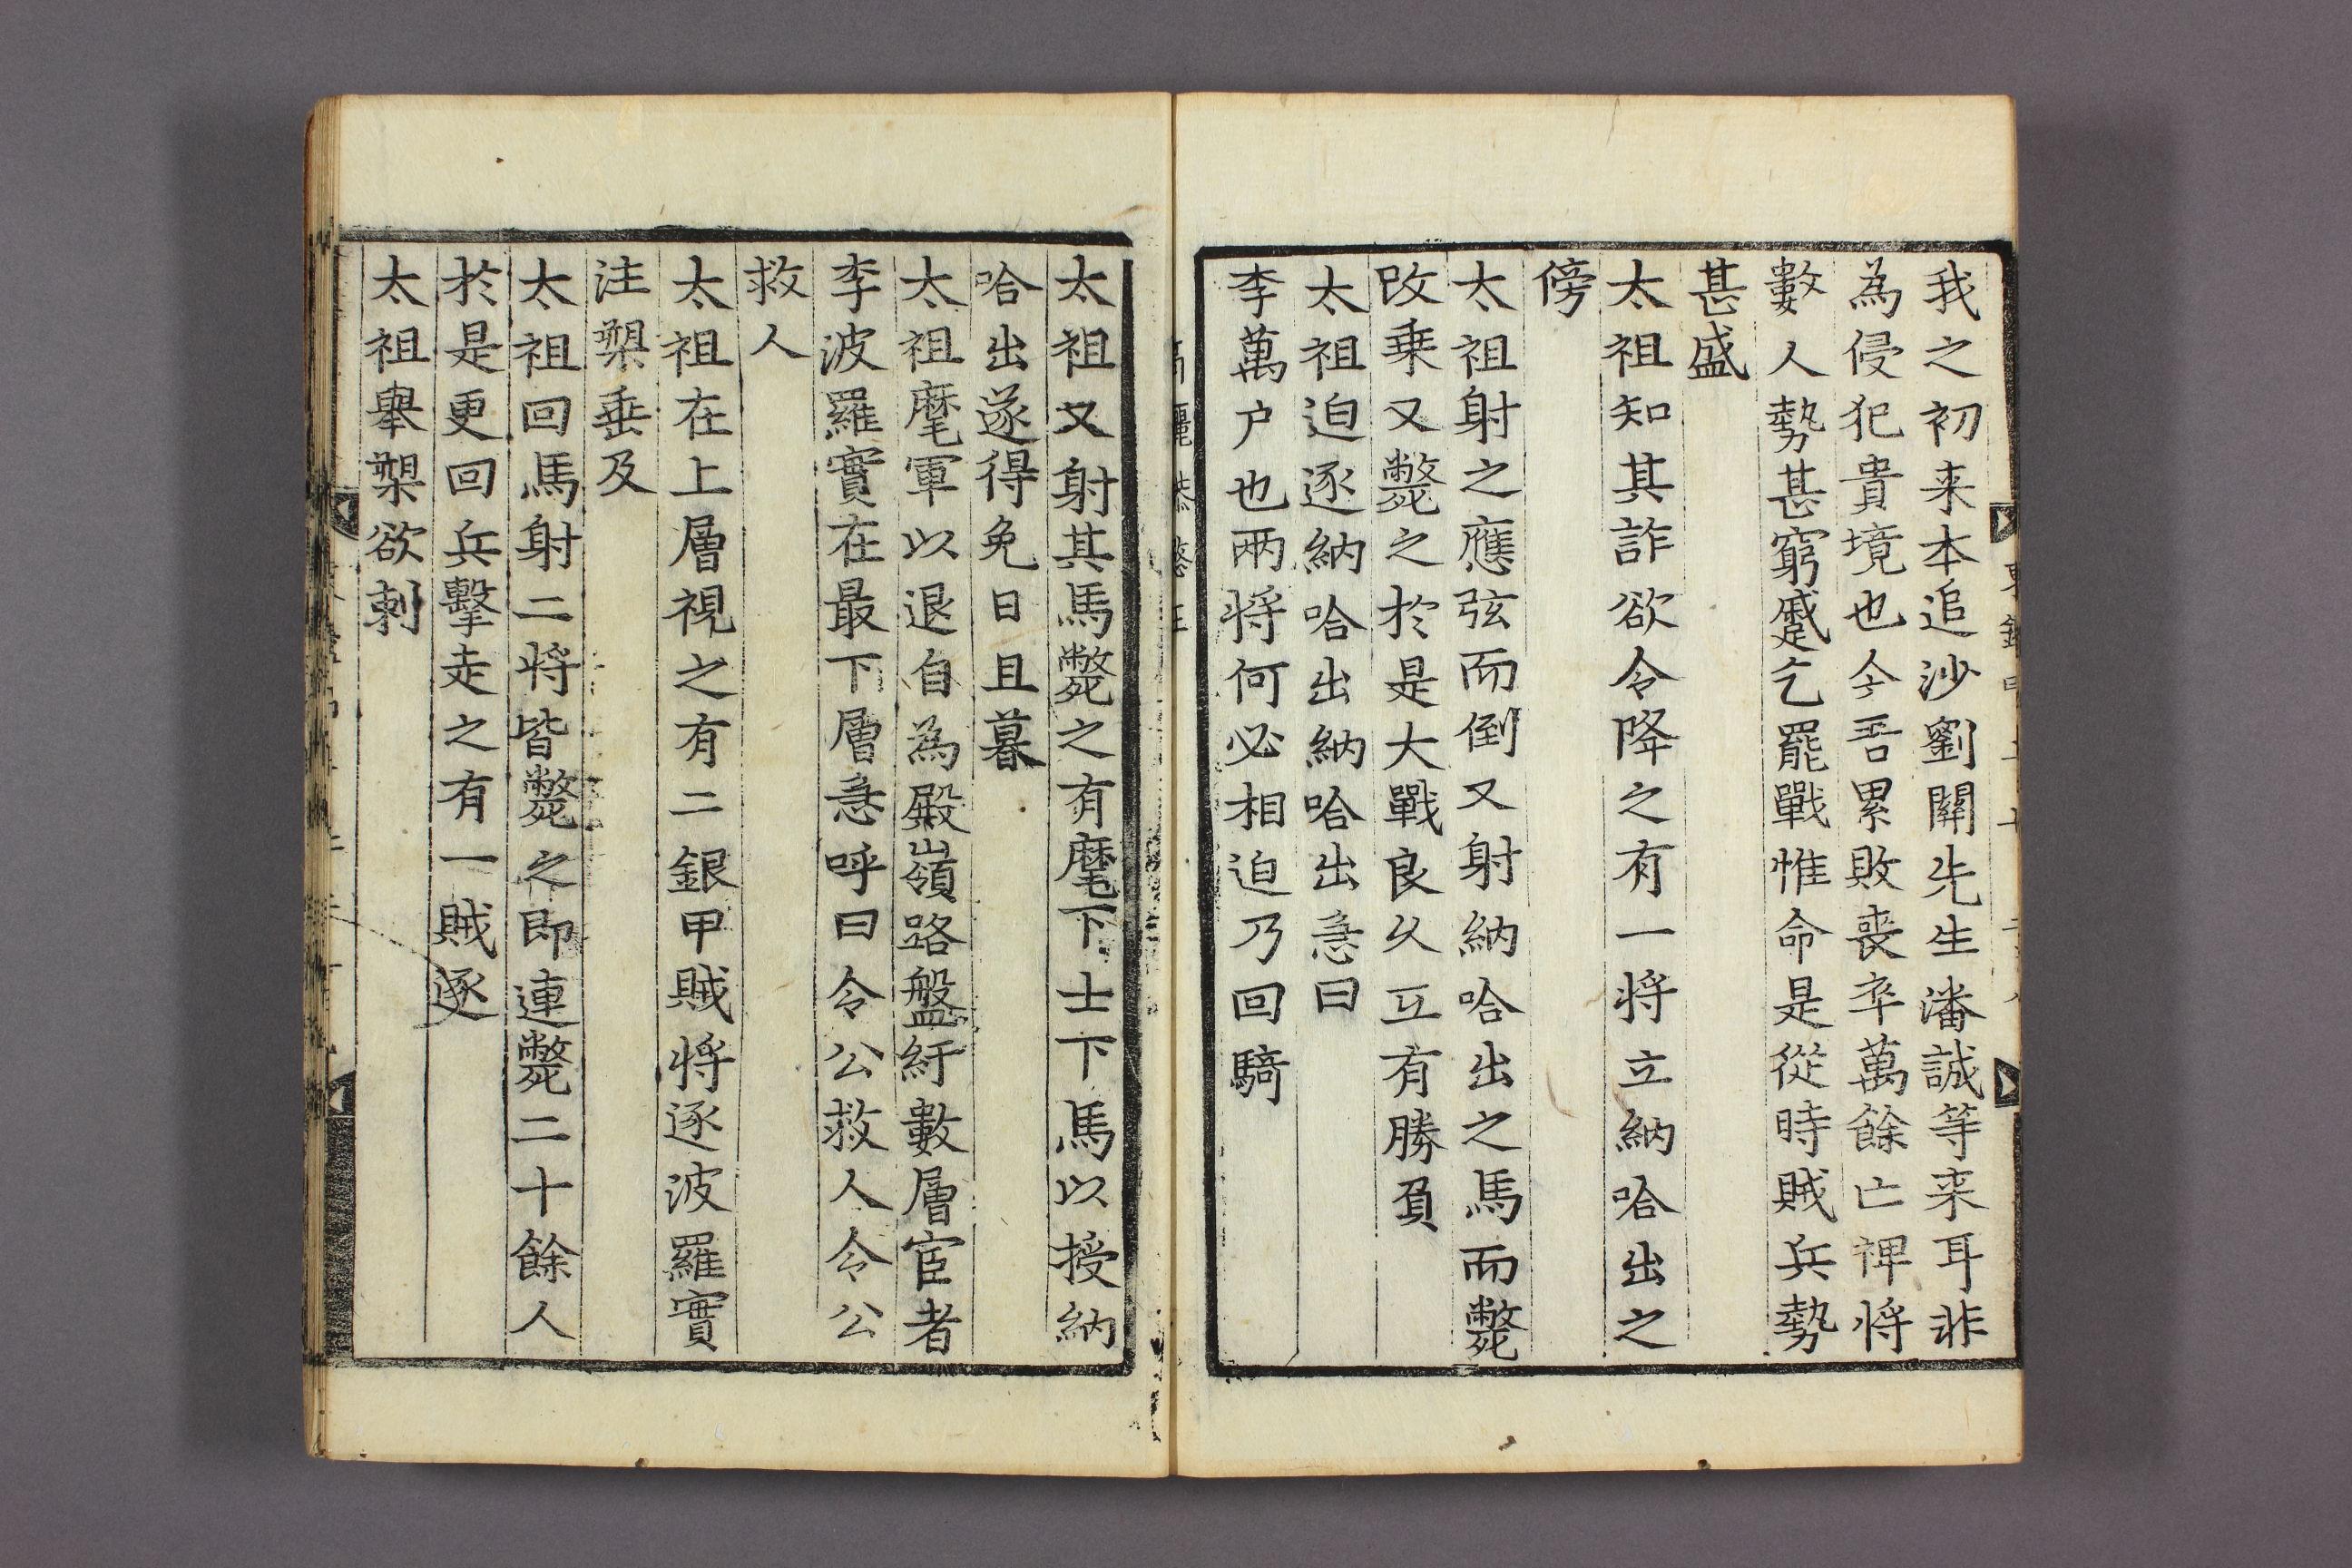 我之初来本追沙劉關先生潘誠等来耳非
為侵犯貴境也今吾累敗丧卒萬餘亡裨将
數人勢甚窮蹙乞罷戰惟命是從時賊兵勢
甚盛
太祖知其詐欲令降之有一将立納哈出之
傍
太祖射之應弦而倒又射納哈出之馬而斃
改乗又斃之於是大戰良久互有勝負
太祖迫逐納哈出納哈出急曰
李萬户也兩将何必相迫乃回騎
高麗恭愍王
太祖又射其馬斃之有麾下士下馬以授納
哈出遂得免日且暮
太祖麾軍以退自為殿嶺路盤紆數層宦者
李波羅實在最下層急呼曰令公救人令公
救人
太祖在上層視之有二銀甲賊将逐波羅實
注槊垂及
太祖回馬射二将皆斃之即連斃二十餘人
於是更回兵擊走之有一賊逐
太祖舉槊欲刺